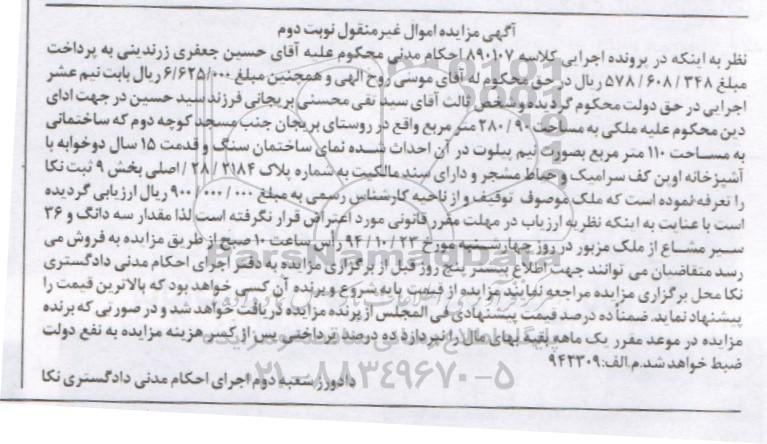 آگهی مزایده اموال غیرمنقول نوبت دوم
نظر به اینکه در پرونده اجرایی کلاسه ۸۹۰۱۰۷ احکام مدنی محکوم علیه آقای حسین جعفری زرندینی به پرداخت
مبلغ ۳۴۸ / ۶۰۸ / ۵۷۸ ریال در حق محکوم له آقای موسی روح الهی و همچنین مبلغ ۶/۶۲۵/۰۰۰ ریال بابت نیم عشر
اجرایی در حق دولت محکوم گردیده و شخص ثالث آقای سید تقی محسنی بریجانی فرزند سید حسین در جهت ادای
دین محکوم علیه ملکی به مساحت ۹۰ / ۲۸۰ متر مربع واقع در روستای بریجان جنب مسجد کوچه دوم که ساختمانی
به مساحت ۱۱۰ متر مربع بصورت نیم پیلوت در آن احداث شده نمای ساختمان سنگ و قدمت ۱۵ سال دوخوابه با
آشپزخانه اوپن کف سرامیک و حیاط مشجر و دارای سند مالکیت به شماره پلاک ۲۱۸۴ / ۲۸ / اصلی بخش ۹ ثبت نکا
را تعرفه نموده است که ملک موصوف توقیف و از ناحیه کارشناس رسمی به مبلغ ۰۰۰ / ۰۰۰ / ۹۰۰ ریال ارزیابی گردیده
است با عنایت به اینکه نظریه ارزیاب در مهلت مقرر قانونی مورد اعتراض قرار نگرفته است لذا مقدار سه دانگ و ۳۶
سیر مشاع از ملک مزبور در روز چهارشنبه مورخ ۲۳ / ۱۰ / ۹۴ رأس ساعت ۱۰ صبح از طریق مزایده به فروش می
رسد متقاضیان می توانند جهت اطلاع بیشتر پنج روز قبل از برگزاری مزایده به دفتر اجرای احکام مدنی دادگستری
نکا محل برگزاری مزایده مراجعه نمایند مزایده از قیمت پایه شروع و برنده آن کسی خواهد بود که بالاترین قیمت را
پیشنهاد نماید. ضمناً ده درصد قیمت پیشنهادی فی المجلس از برنده مزایده دریافت خواهد شد و در صورتی که برنده
مزایده در موعد مقرر یک ماهه بقیه بهای مال را نپردازد ده درصد پرداختی پس از کسر هزینه مزایده به نفع دولت
ضبط خواهد شد.م.الف:۹۴۳۳۰۹
دادورز شعبه دوم اجرای احکام مدنی دادگستری نکا
ParsNamadData
۰۲۱-۸۸۳۴۹۶۷۰-۵